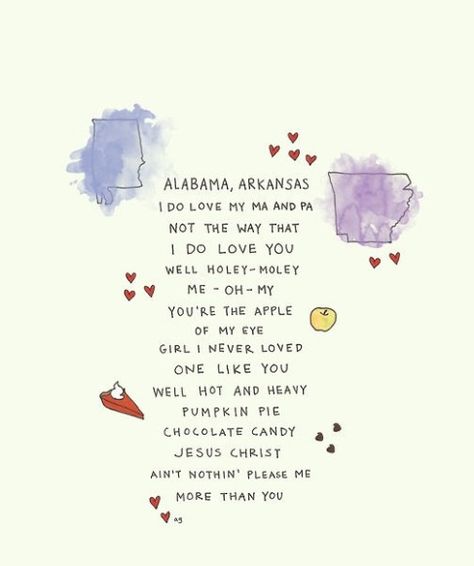 ALABAMA, ARKANSAS
I DO LOVE MY MA AND PA
NOT THE WAY THAT
I DO LOVE YOU
WELL HOLEY-MOLEY
ME - OH - MY
YOU'RE THE APPLE
OF MY EYE
GIRL I NEVER LOVED
ONE LIKE YOU
WELL HOT AND HEAVY
PUMPKIN PIE
CHOCOLATE CANDY
JESUS CHRIST
AIN'T NOTHIN' PLEASE ME
MORE THAN YOU
ag